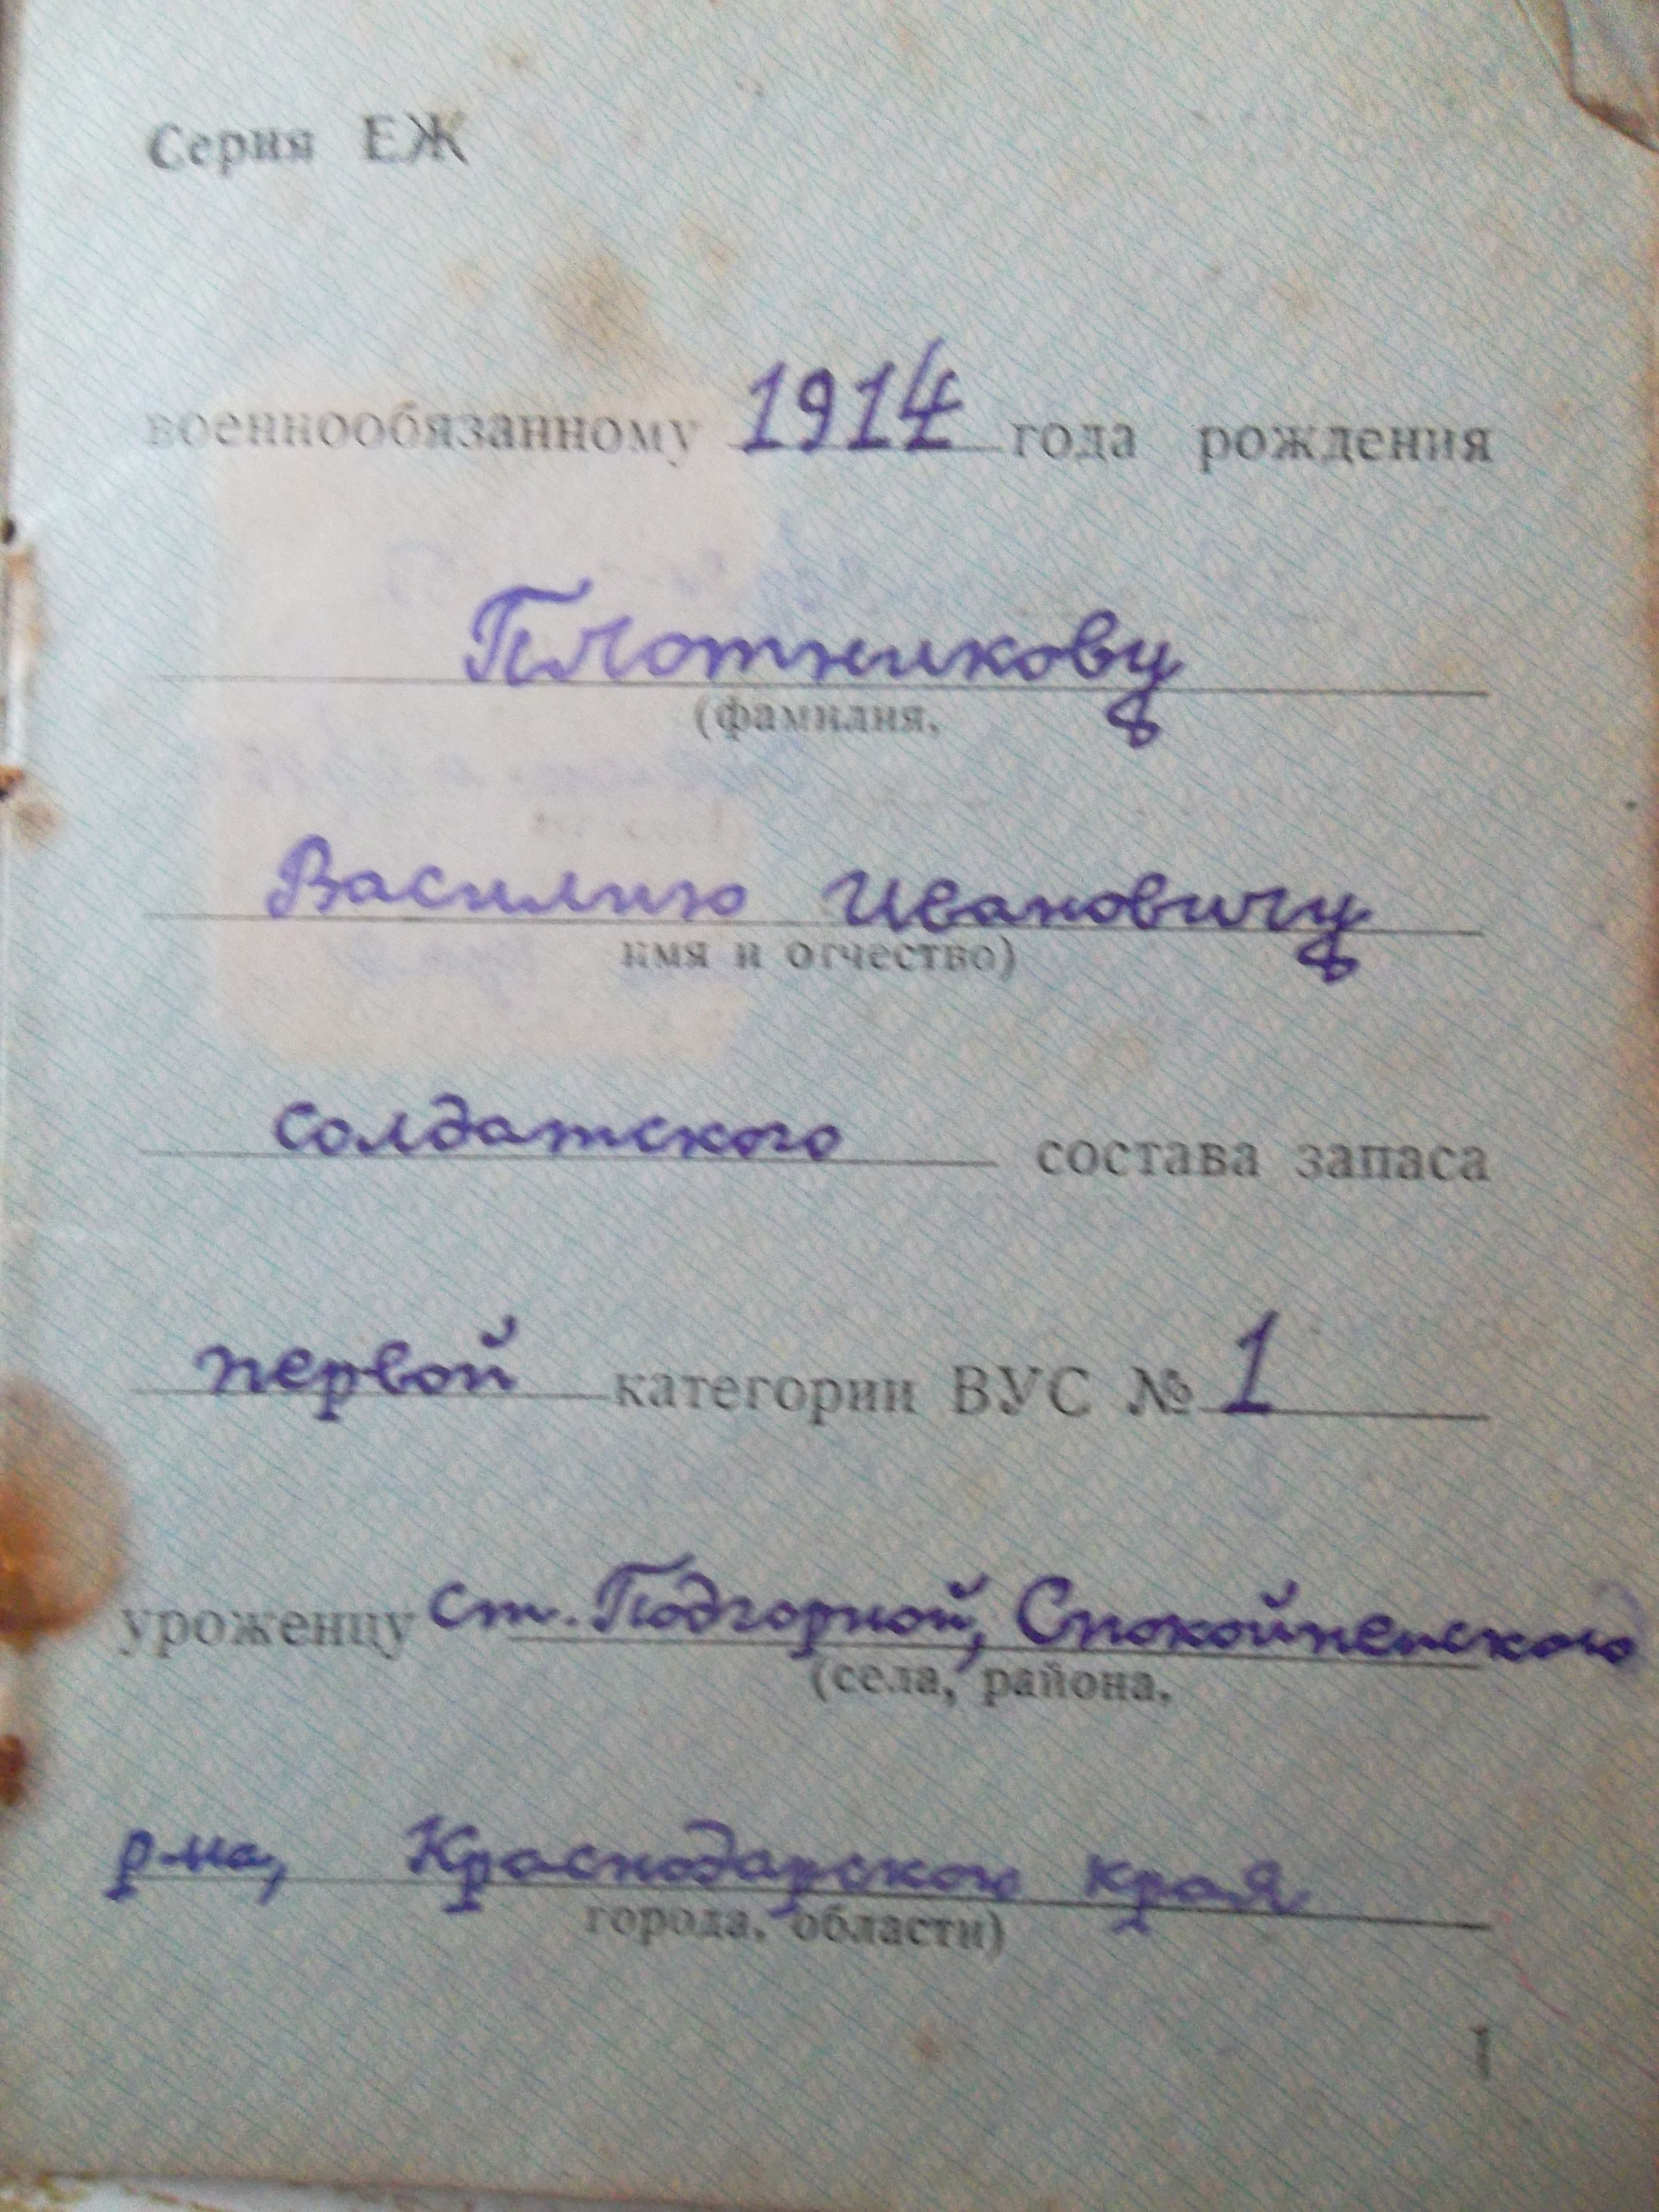 Серия ЕЖ
военнообязанному 1914 года рождения
Плотникову
(фамилия,
Василию Ивановичу
имя и отчество)
солдатского состава запаса
первой категории ВУС № 1
уроженцу ст. Подгорной, Спокойненского
(села, района,
р-на, Краснодарского края
города, области)
1